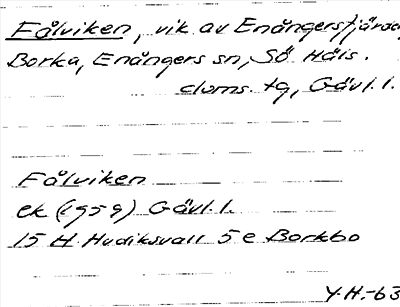 Fålviken, vik av Enångersfjärden
Borka, Enångers sn, Sö Häls.
doms. tg, Gävl. l.
Fålviken
ek (1959) Gävl. l.
15 H Hudiksvall 5 e Borkbo
Y.H.-63